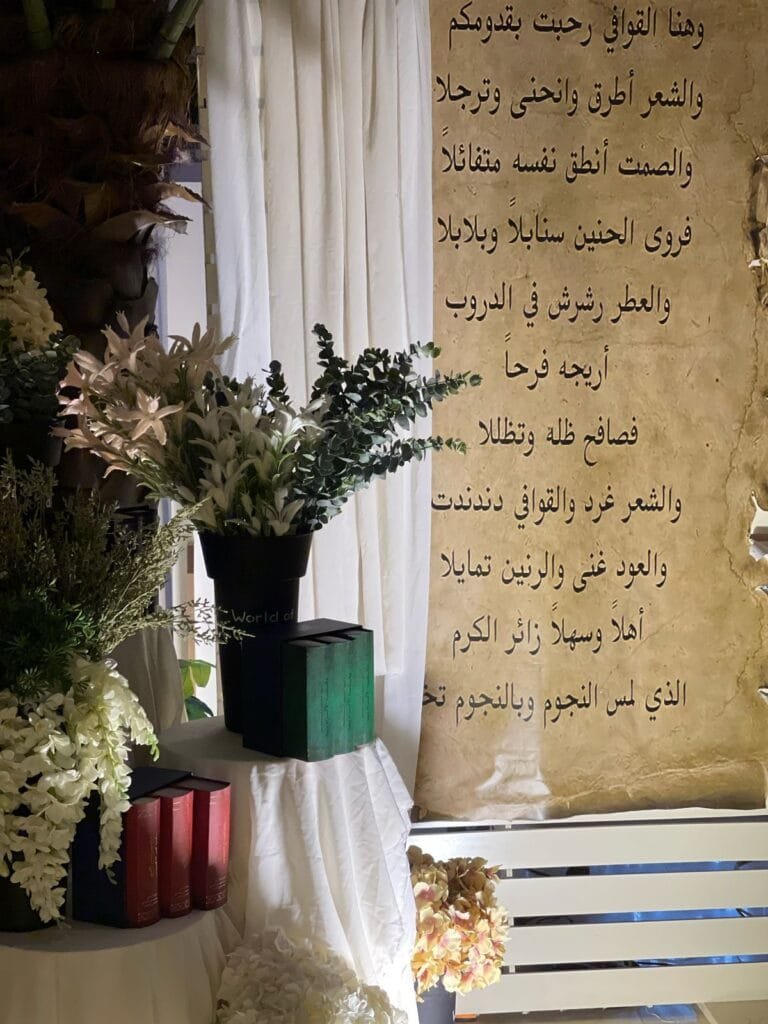 وهنا القوافي رحبت بقدومكم
والشعر أطرق وانحنى وترجلا
والصمت أنطق نفسه متفائلاً
فروى الحنين سنابلاً وبلابلا
والعطر رشرش في الدروب
أريجه فرحاً
فصافح ظله وتظللا
والشعر غرد والقوافي دندندت
والعود غنى والرنين تمايلا
أهلاً وسهلاً زائر الكرم
الذي لمس النجوم وبالنجوم
World of